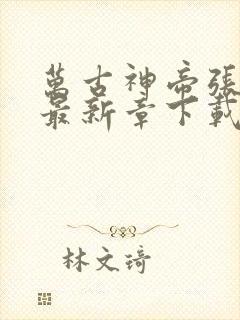 萬古神帝張
最新章下載
林文琦